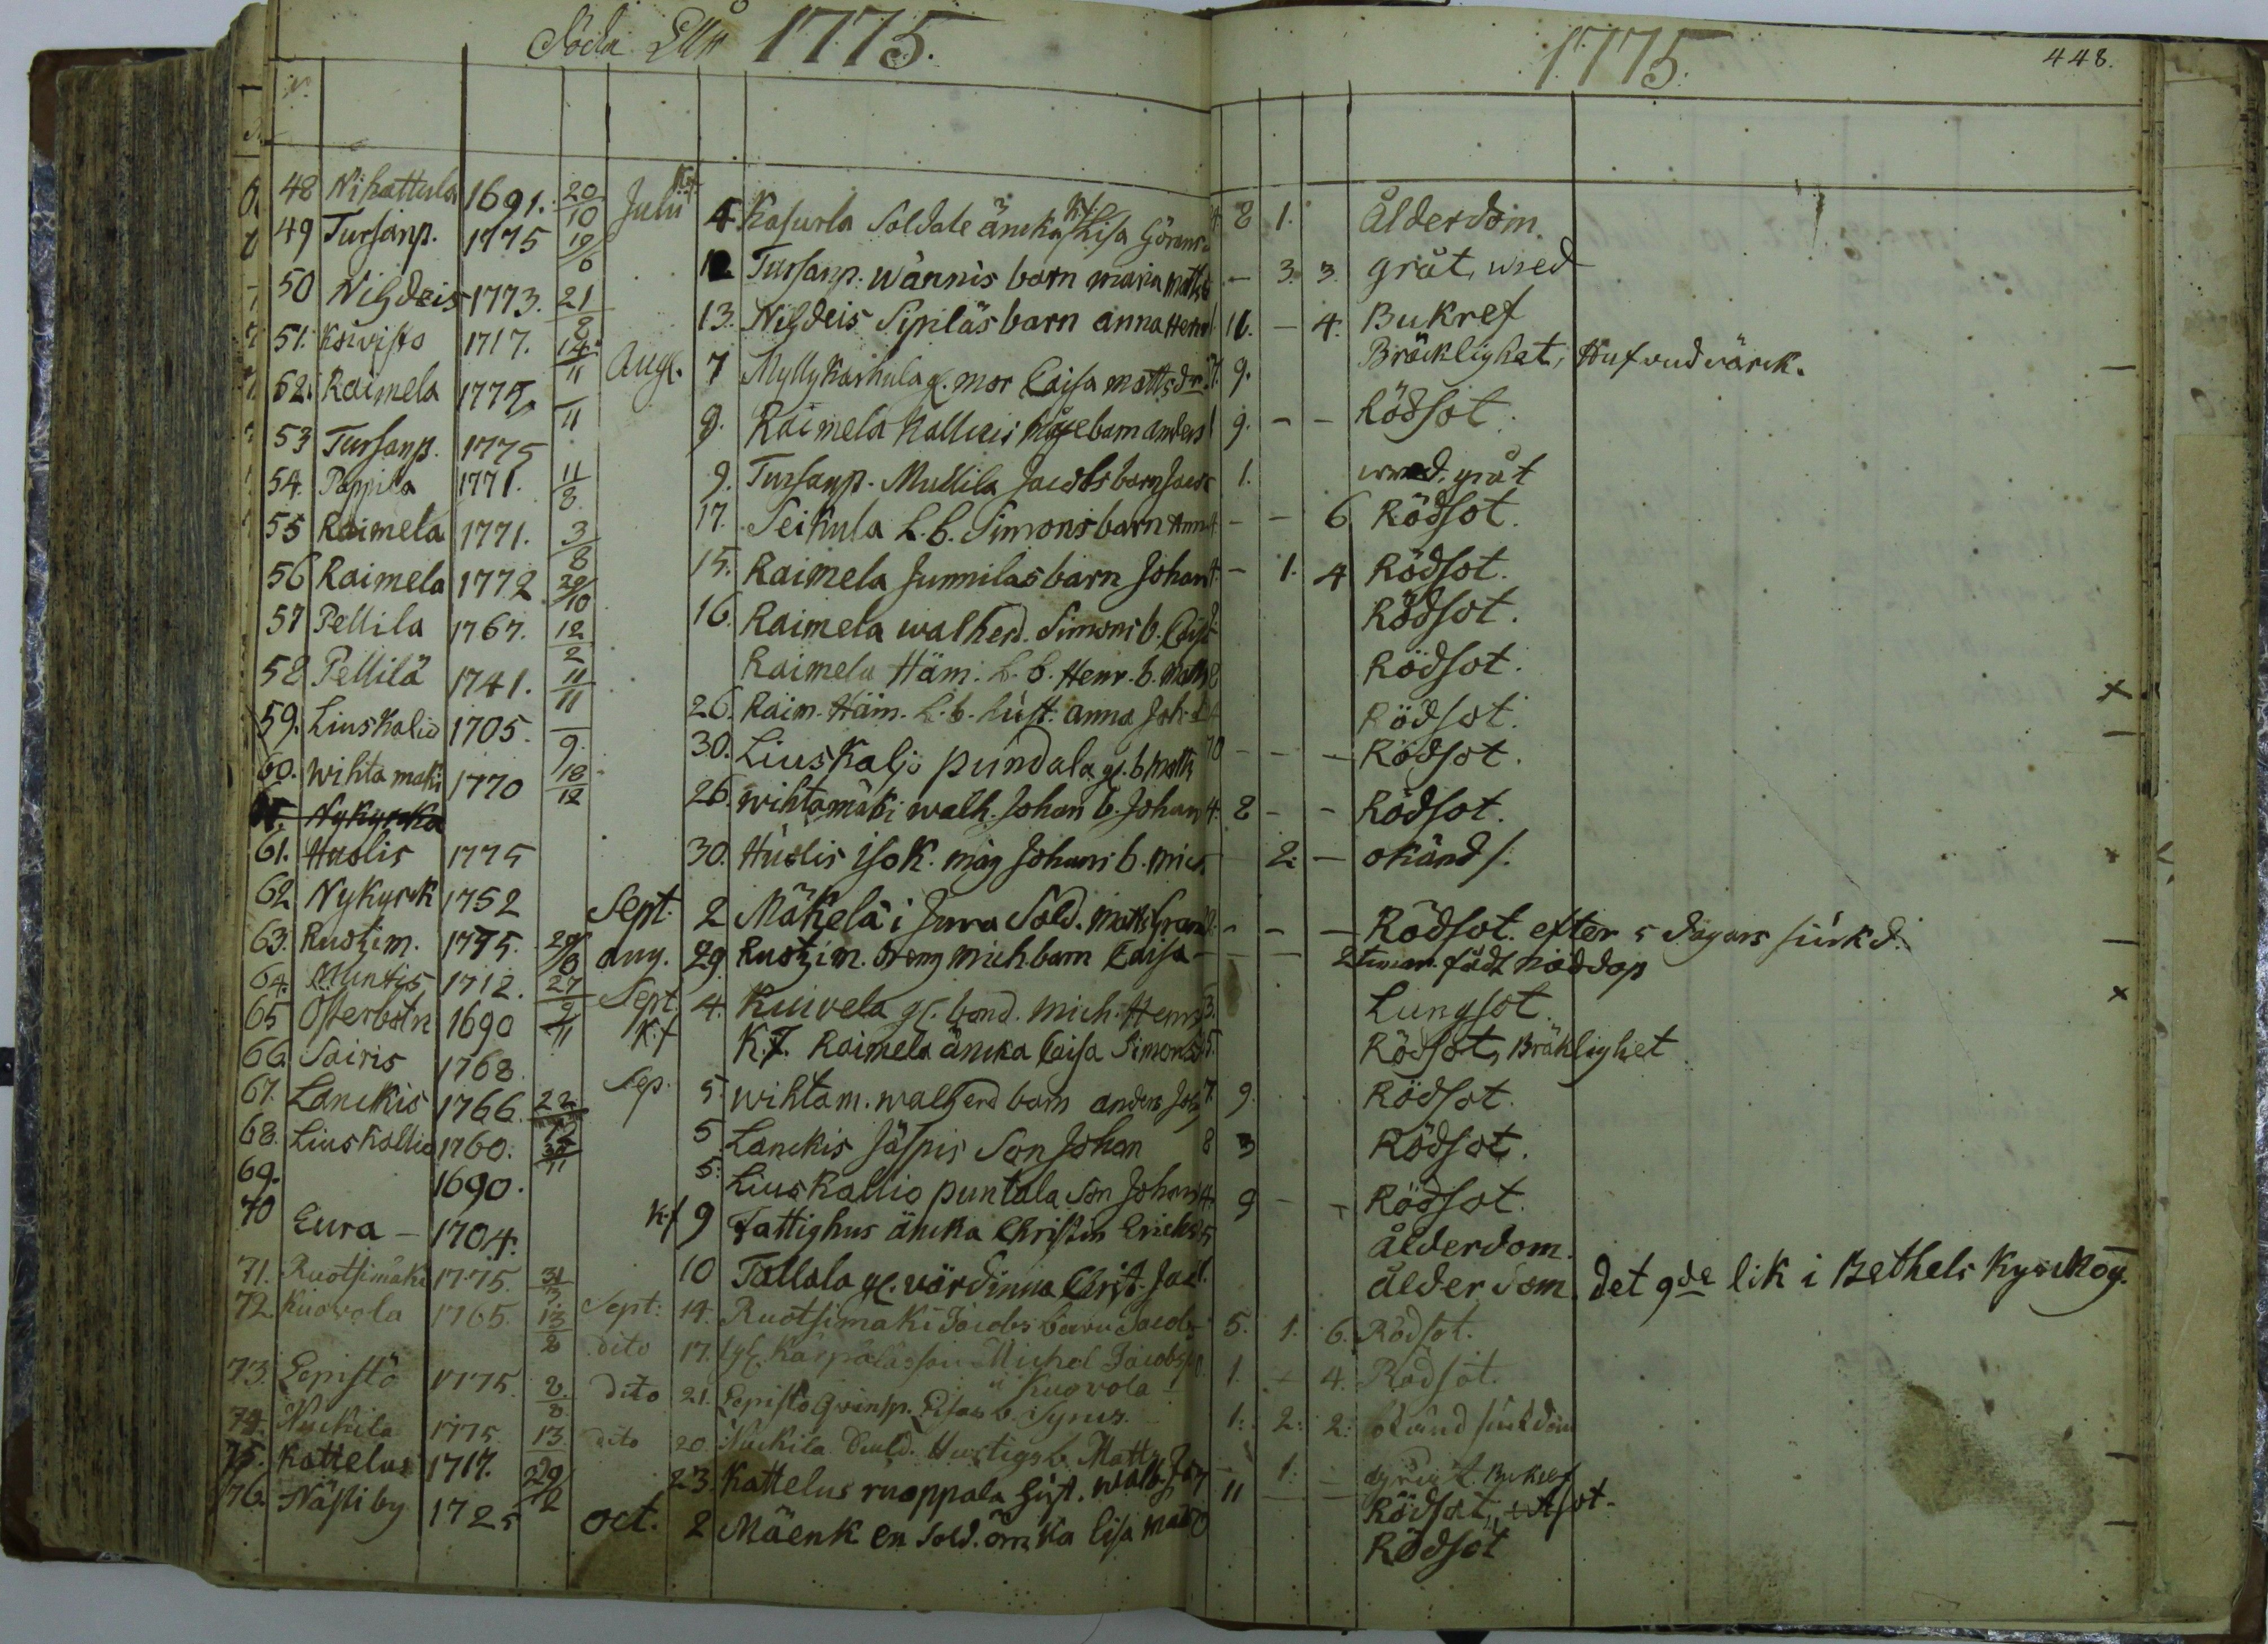 Döda År 1775.
1775.
448.
48 Nihattula 1691. 20/10 Julii 4 Kasurla Soldate änka Lisa Görans 8 1. Ålderdom.
49 Tursanp. 1775 19/6 12 Tursanp. wännis barn maria matts - 3. 3. gråt, wred
50 Nihdeis 1773. 21/8 13. Nihdeis Sipiläs barn anna Henr 11. - 4. Bukref
51. Koivisto 1717. 14/11 Aug. 7 Myllykaskula gl. mor Caisa mattsdr. 9. Bräcklighet, Hufvudvärck.
52. Raimela 1775 /11 9. Raimela Kallicis barn anders 9. - - Rödsot.
53 Tursanp. 1775 9. Tursanp. Mullila Jacobs barn Jacob 1. wred, gråt
54. Pappila 1771. 11/8. 17. Seikula L. b. Simons barn Ann - - 6 Rödsot.
55 Raimela 1771. 3/8 15. Raimela Junnilas barn Johan - 1. 4 Rödsot.
56 Raimela 1772 29/10 16. Raimela walherd. Simons b. Cajs Rödsot.
57 Pellila 1767. 12/2 Raimela Häm. L. b. Henr. b. Matts Rödsot.
58 Pellilä 1741. 11/11 26. Raim. Häm. L. b. hust. anna Joh. Rödsot.
59. Liuskalio 1705. /9. 30. Liuskaljo pundala gl. b. Matts 70 - - - Rödsot.
60. Wihtamäki 1770 18/12 26. wihtamäki walh. Johan b. Johan 4. 8 - - Rödsot.
Nykyrka
61. Huolis 1775 30. Huolis iso K. måg Johans b. mich 2. - okänd s.
62 Nykyrk 1752 Sept. 2 Mäkelä i Juva Sold. Matts Gran - - - Rödsot. efter 5 dagars siukd.
63. Ruotzim. 1775. 29/8 Aug. 29 Ruotzim. dreng Mich. barn Caisa - - - 2 timar. född nöddop
64. Muntis 1712. 27/9 Sept. 4. Kuivela gl. bond. Mich. Henr Lungsot.
65 Österbotn 1690 /11 K.f K.f. Raimela änka Caisa Simons 5. Rödsot, Bräklighet
66. Sairis 1768. Sep. 5. wihtam. walherd barn anders Joh 7. 9. Rödsot.
67. Lanckis 1766. 22 5 Lanckis Jäspis Son Johan 8 3 Rödsot.
68. Liuskallio 1760. 30/11 5. Liuskallio puntala Son Johan 4. 9 - - Rödsot.
69. 1690. K.f 9 Fattighus änka Christin Erichs 5 Ålderdom.
70 Eura - 1704. 10 Tallala gl. värdinna Christ. Jac ålderdom. det 9de lik i Bethels Kyrkog.
71. Ruotsimäki 1775. 31/3 Sept: 14. Ruotsimäki Jacobs barn Jacob 5. 1. 6. Rödsot.
72. Kuovola 1765. 13/8 dito 17. Karpalas son Michel Jacobs i Kuovola 1. - 4. Rödsot.
73. Lepistö 1775. 2./8 dito 21. Lepistö qvinsp. Lisas b. Syrus. 1: 2: 2: okänd siukdom
74. Nuckila 1775. 13 dito 20. Nuckila Sold. Hurtigs b. Matts - 1. - Bukref
75. Kattelus 1717. 29/12 23. Kattelus ruoppala hust. walb. Joh 11 - - Rödsot,
76. Nästi by 1725 oct. 2 Mäenk en sold. änka lisa Rödsot